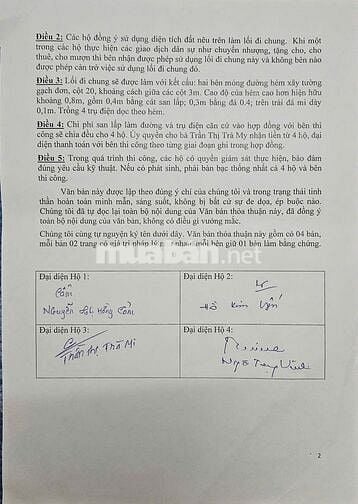 Điều 2: Các hộ đồng ý sử dụng diện tích đất nêu trên làm lối đi chung. Khi một
trong các hộ thực hiện các giao dịch dân sự như chuyển nhượng, tặng cho, cho
thuê, cho mượn thì bên nhận được phép sử dụng lối đi chung này và không bên nào
được phép cản trở việc sử dụng lối đi chung đó.
Điều 3: Lối đi chung sẽ được làm với kết cấu: hai bên móng đường hẻm xây tường
gạch đơn, cột 20, khoảng cách giữa các cột 3m. Cao độ của hẻm cao hơn hiện hữu
khoảng 0,8m, gồm 0,4m bằng cát san lấp; 0,3m bằng đá 0.4; trên trải đá mi dày
0,1m. Trồng 4 trụ điện dọc theo hẻm.
Điều 4: Chi phí san lấp làm đường và trụ điện căn cứ vào hợp đồng với bên thi
công sẽ chia đều cho 4 hộ. Ủy quyền cho bà Trần Thị Trà My nhận tiền từ 4 hộ, đại
diện thanh toán với bên thi công theo từng giai đoạn ghi trong hợp đồng.
Điều 5: Trong quá trình thi công, các hộ có quyền giám sát thực hiện, bảo đảm
đúng yêu cầu kỹ thuật. Nếu có phát sinh, phải bàn bạc thống nhất cả 4 hộ và bên
thi công.
Văn bản này được lập theo đúng ý chí của chúng tôi và trong trạng thái tinh
thần hoàn toàn minh mẫn, sáng suốt, không bị bất cứ sự đe dọa, ép buộc nào.
Chúng tôi đã tự đọc lại toàn bộ nội dung của Văn bản thỏa thuận này, đã đồng ý
toàn bộ nội dung của văn bản, không có điều gì vướng mắc.
Chúng tôi cùng tự nguyện ký tên dưới đây. Văn bản thỏa thuận này gồm có 04 bản,
mỗi bản 02 trang có giá trị pháp lý như nhau, mỗi bên giữ 01 bản làm bằng chứng.
muaban.net
Đại diện Hộ 1:
Đại diện Hộ 2:
Cẩm
Nguyễn Thị Hồng Cẩm
Hồ Kim Vấn
Đại diện Hộ 3:
Đại diện Hộ 4:
Trần Thị Trà Mi
2